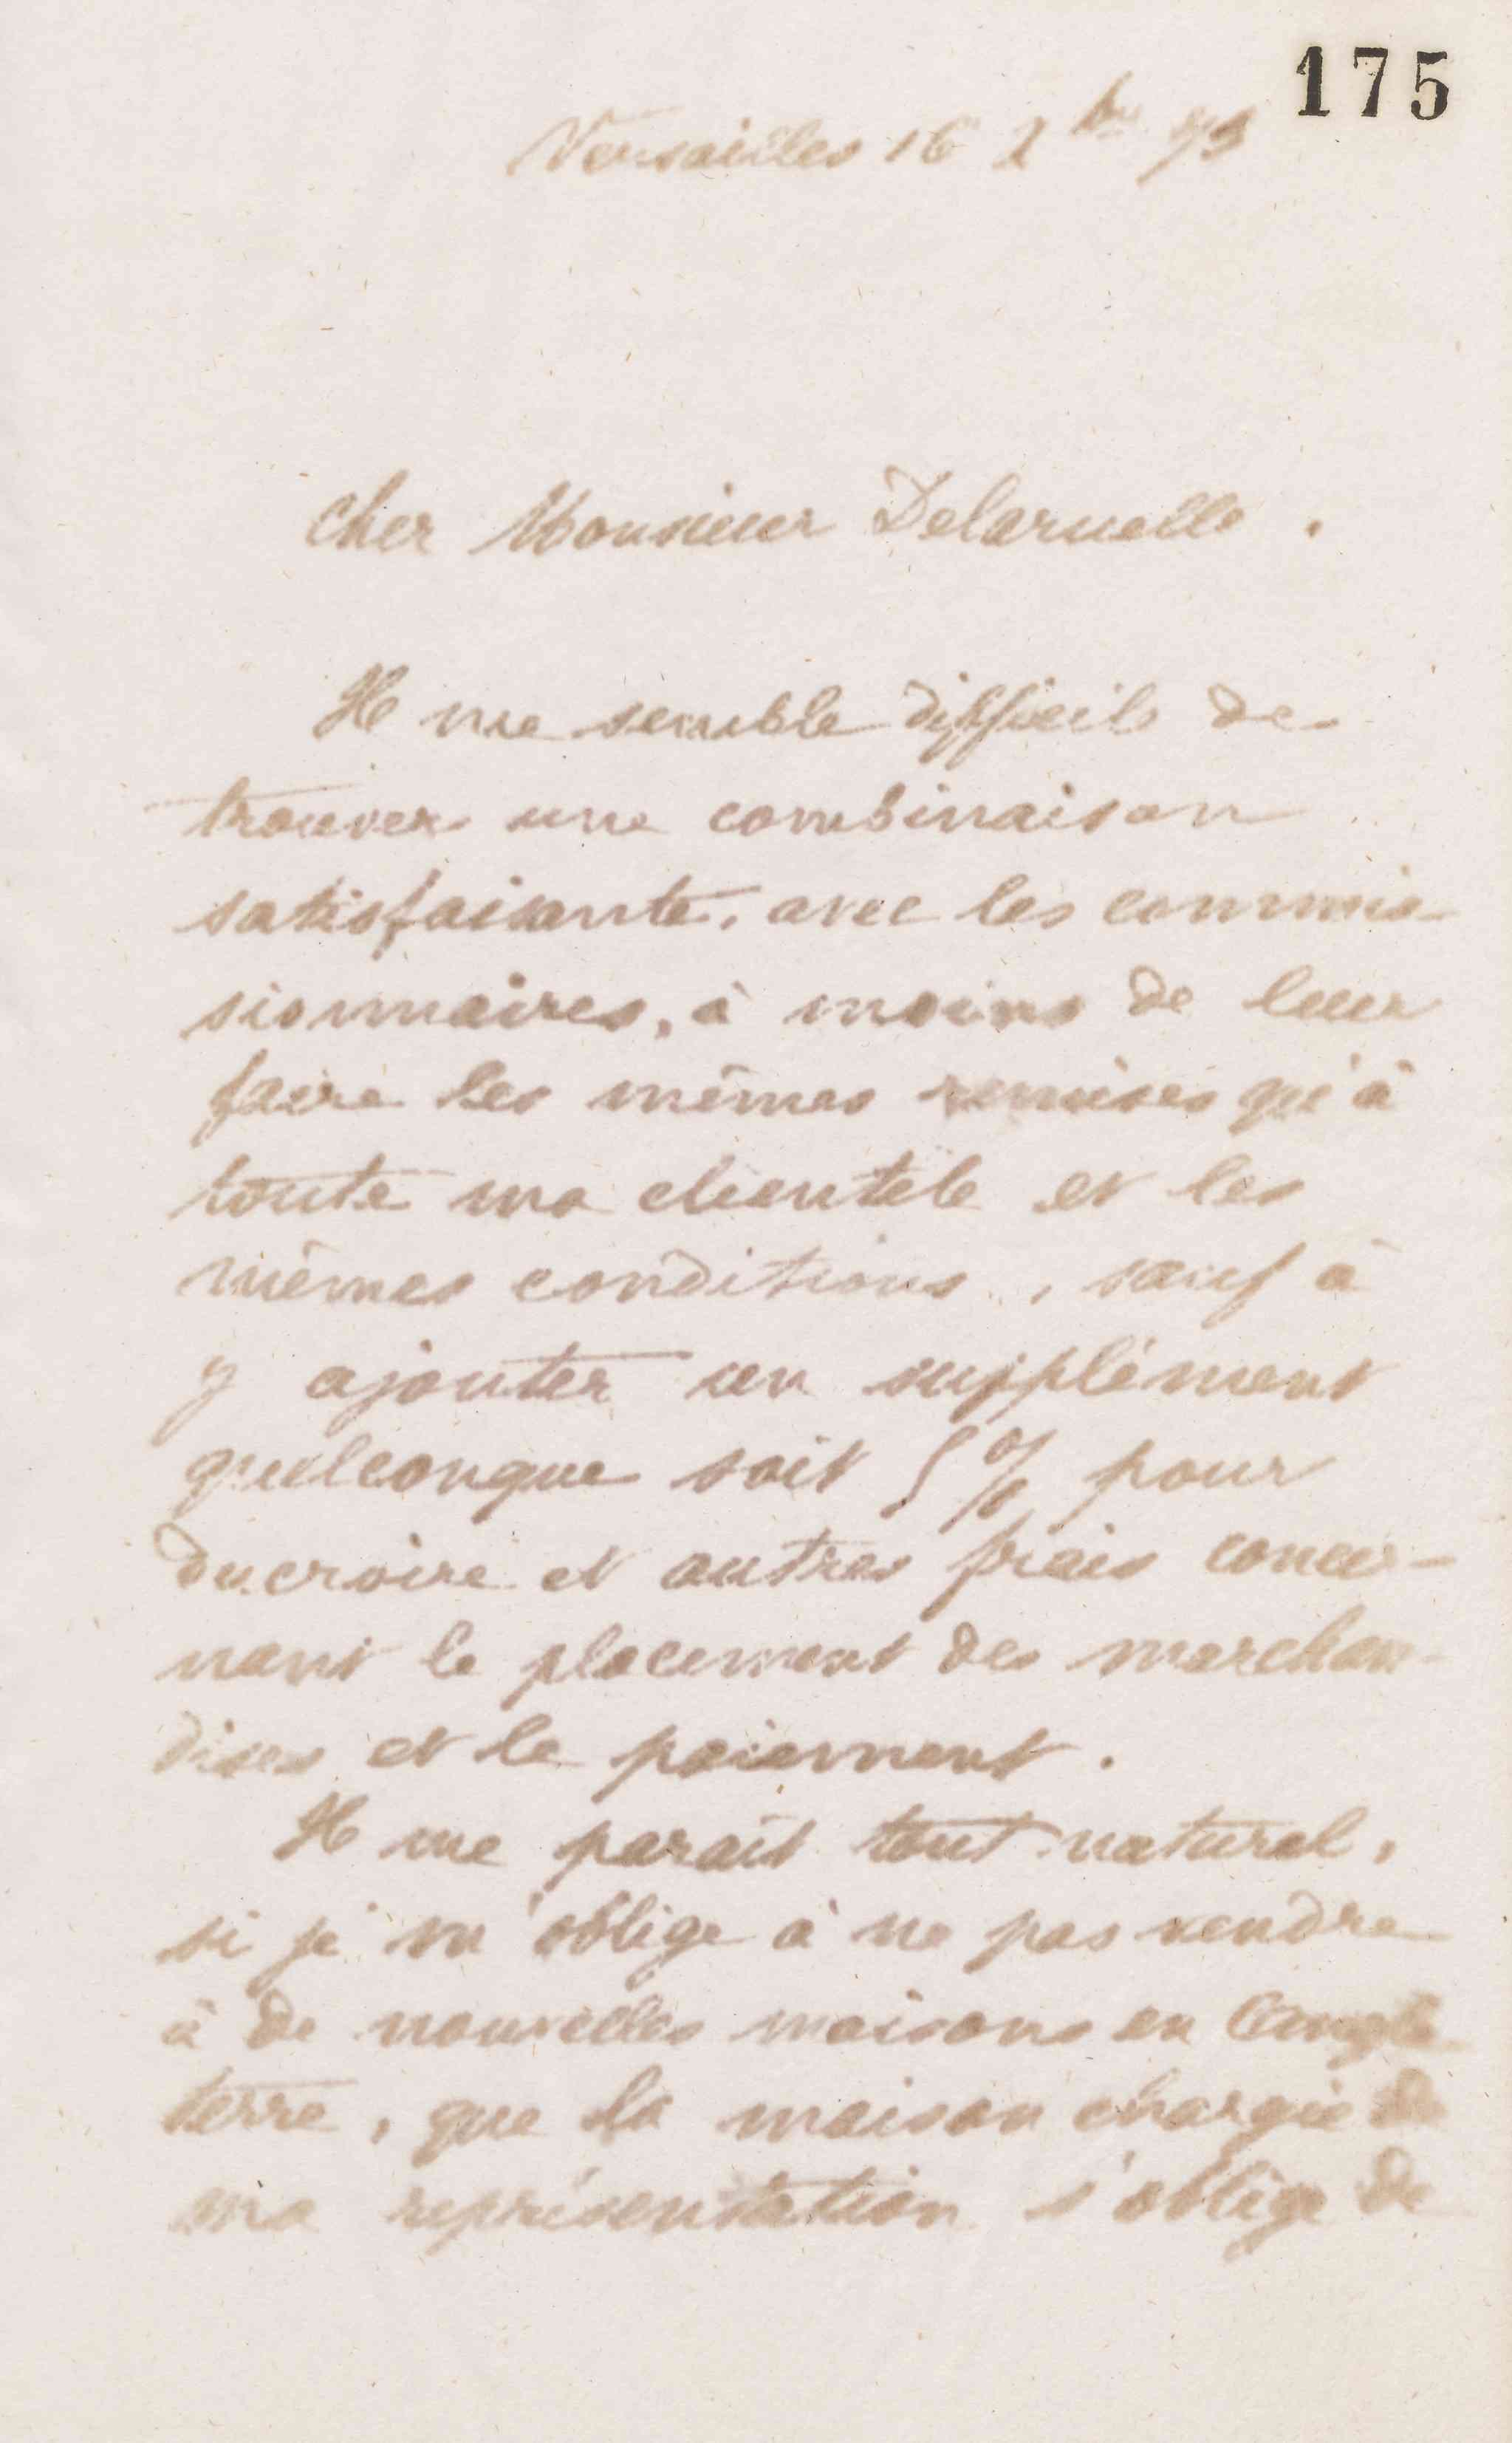 175
Versailles 16 bre 93
Cher Monsieur Delaruelle.
Il me semble difficile de
trouver une combinaison
satisfaisante, avec les commis-
sionnaires, à moins de leur
faire les mêmes remises qu'à
toute ma clientèle et les
mêmes conditions, sauf à
y ajouter un supplément
quelconque soit 5% pour
ducroire et autres frais concer-
nant le placement des marchan-
dises et le paiement.
Il me parait tout naturel,
si je m'oblige à ne pas vendre
à de nouvelles maisons en Angle
terre, que la maison chargée de
ma représentation s'oblige de